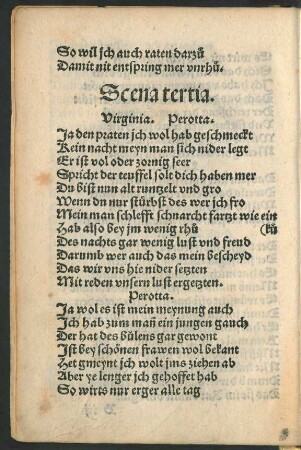 So wil jch auch raten darzů
Damit nit entspring mer vnrhů.
Scena tertia.
Virginia. Perotta.
Ja den praten jch wol hab geschmeckt
Kein nacht meyn man sich nider legt
Er ist vol oder zornig seer
Spricht der teuffel solt dich haben mer
Du bist nun alt runtzelt vnd gro
Wenn du nur stürbst des wer jch fro
Mein man schlefft schnarcht fartzt wie ein
Hab also bey jm wenig rhů (ků
Des nachts gar wenig lust vnd freud
Darumb wer auch das mein bescheyd
Das wir vns hie nider setzten
Mit reden vnsern lust ergetzten.
Perotta.
Ja wol es ist mein meynung auch
Jch hab zum mañ ein jungen gauch
Der hat des bůlens gar gewont
Jst bey schönen frawen wol bekant
Het gmeynt jch wolt jms ziehen ab
Aber ye lenger jch gehoffet hab
So wirts nur erger alle tag